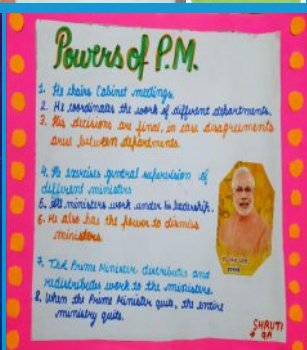 Powers of P.M.
1. He chairs Cabinet meetings.
2. He coordinates the work of different departments.
3. His decisions are final, in case disagreements
arise between departments.
4. He exercises general supervision of
different ministers
5. All ministers work under his leadership.
6. He also has the power to dismiss
ministers.
7. The Prime Minister distributes and
redistributes work to the ministers.
8. When the Prime Minister quits, the entire
ministry quits.
SHRUTI
9A